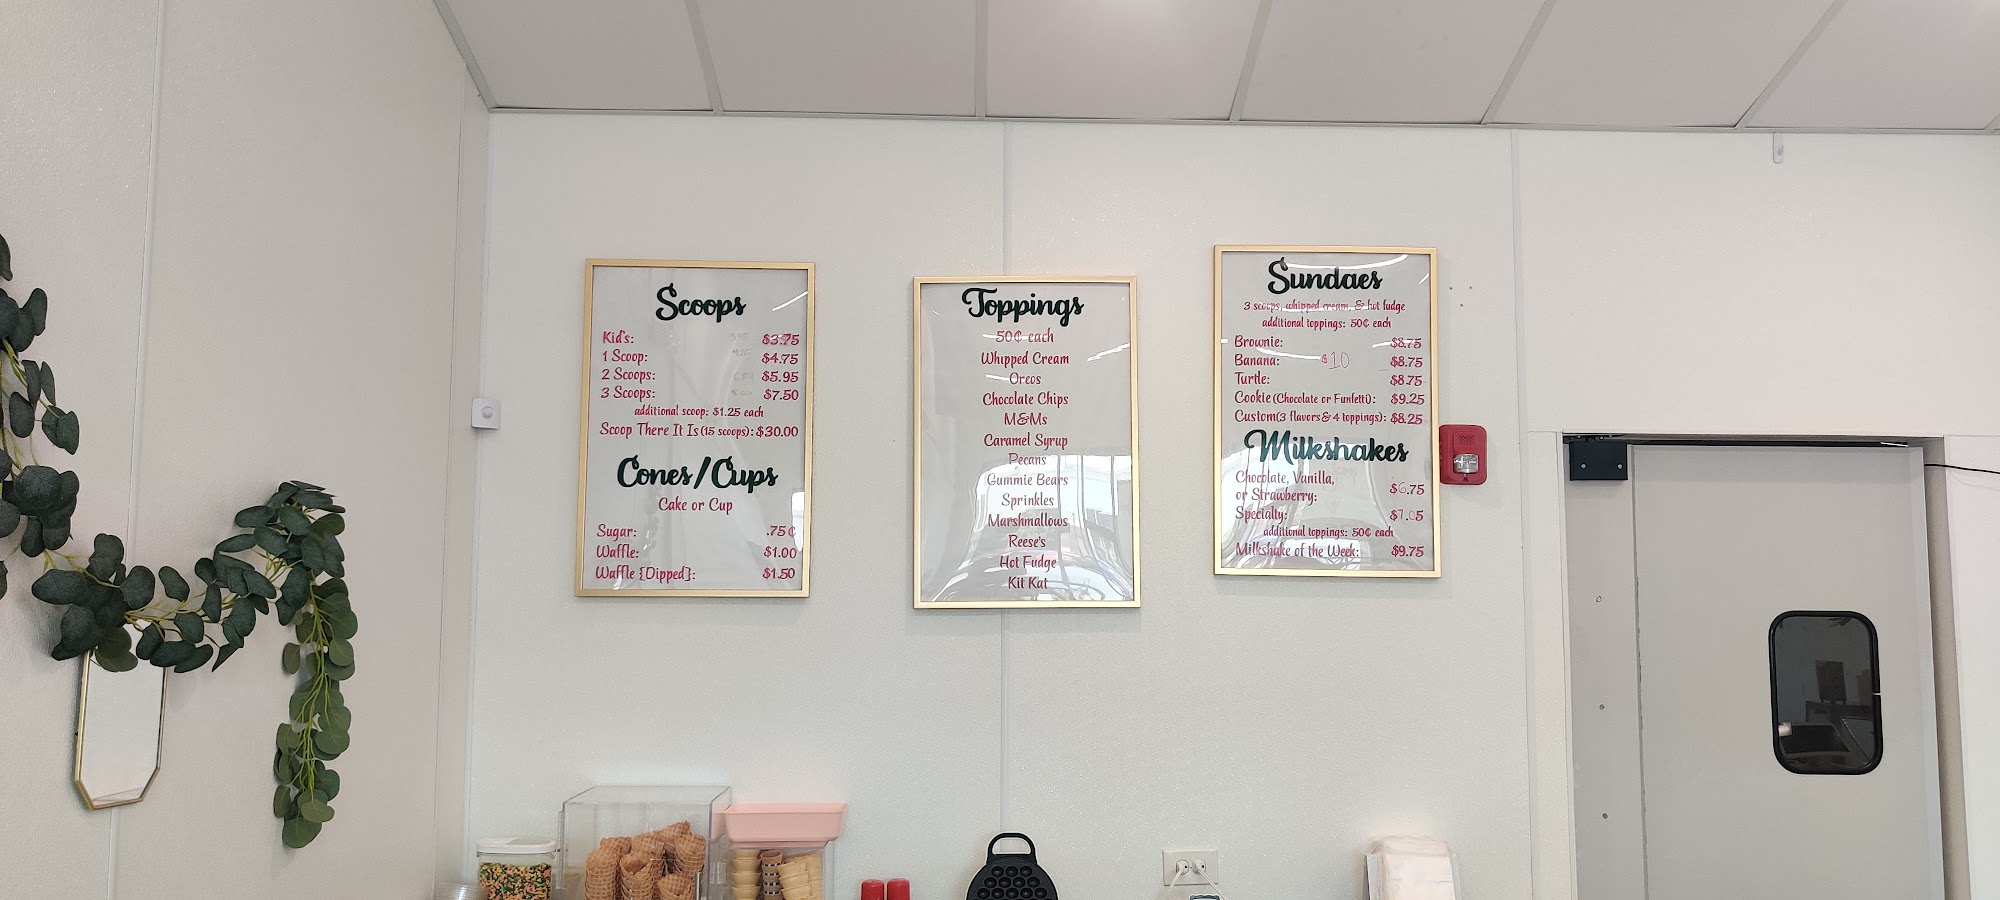 Scoops
Kid's: $3.75
1 Scoop: $4.75
2 Scoops: $5.95
3 Scoops: $7.50
additional scoop: $1.25 each
Scoop There It Is (15 scoops): $30.00
Cones/Cups
Cake or Cup
Sugar: .75¢
Waffle: $1.00
Waffle {Dipped}: $1.50
Toppings
50¢ each
Whipped Cream
Oreos
Chocolate Chips
M&Ms
Caramel Syrup
Pecans
Gummie Bears
Sprinkles
Marshmallows
Reese's
Hot Fudge
Kit Kat
Sundaes
3 scoops, whipped cream, & hot fudge
additional toppings: 50¢ each
Brownie: $8.75
Banana: $10 $8.75
Turtle: $8.75
Cookie (Chocolate or Funfetti): $9.25
Custom (3 flavors & 4 toppings): $8.25
Milkshakes
Chocolate, Vanilla,
or Strawberry: $6.75
Specialty: $7.05
additional toppings: 50¢ each
Milkshake of the Week: $9.75